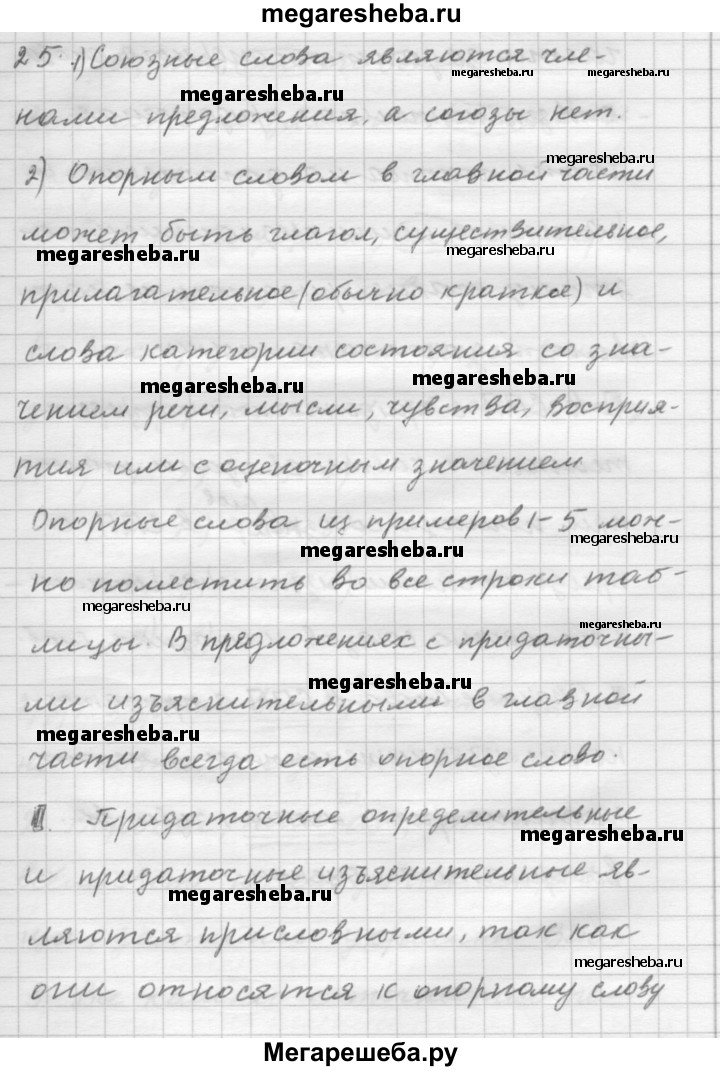 megaresheba.ru
25. 1) Союзные слова являются чле-
megaresheba.ru
megaresheba.ru
megaresheba.ru
нами предложения, а союзы нет.
megaresheba.ru
2) Опорным словом в главной части
может быть глагол, существительное,
megaresheba.ru
megaresheba.ru
прилагательное (обычно краткое) и
слова категории состояния со зна-
megaresheba.ru
megaresheba.ru
чением речи, мысли, чувства, восприя-
тия или с оценочным значением
Опорные слова из примеров 1-5 мож-
megaresheba.ru
megaresheba.ru
но поместить во все строки таб-
megaresheba.ru
megaresheba.ru
лицы. В предложениях с придаточны-
megaresheba.ru
ми изъяснительными в главной
megaresheba.ru
части всегда есть опорное слово.
II. Придаточные определительные
megaresheba.ru
и придаточные изъяснительные яв-
megaresheba.ru
ляются присловными, так как
megaresheba.ru
они относятся к опорному слову
Мегарешеба.ру